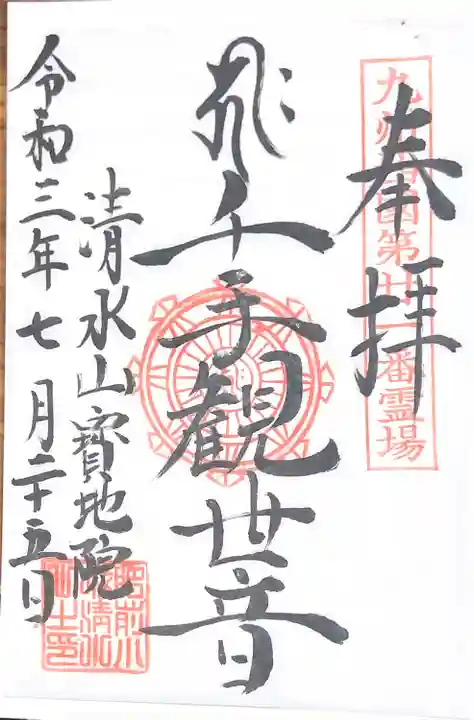 奉拝
九州西国第廿一番霊場
千手観世音
清水山寳地院
令和三年七月二十五日